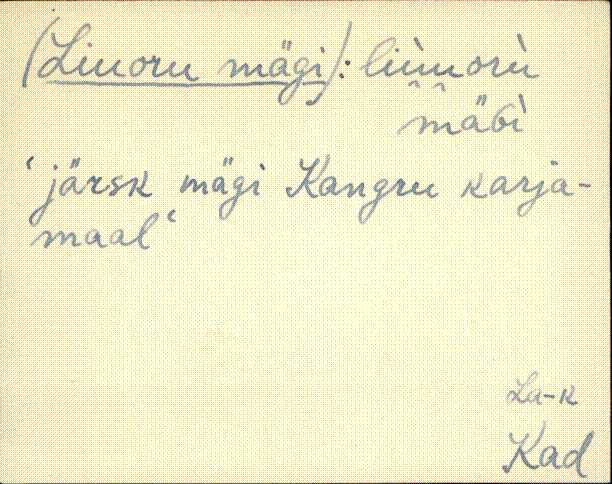 (Linoru mägi): liǹnorù
mäGì
‘järsk mägi Kangru karja-
maal‘
La-k
Kad